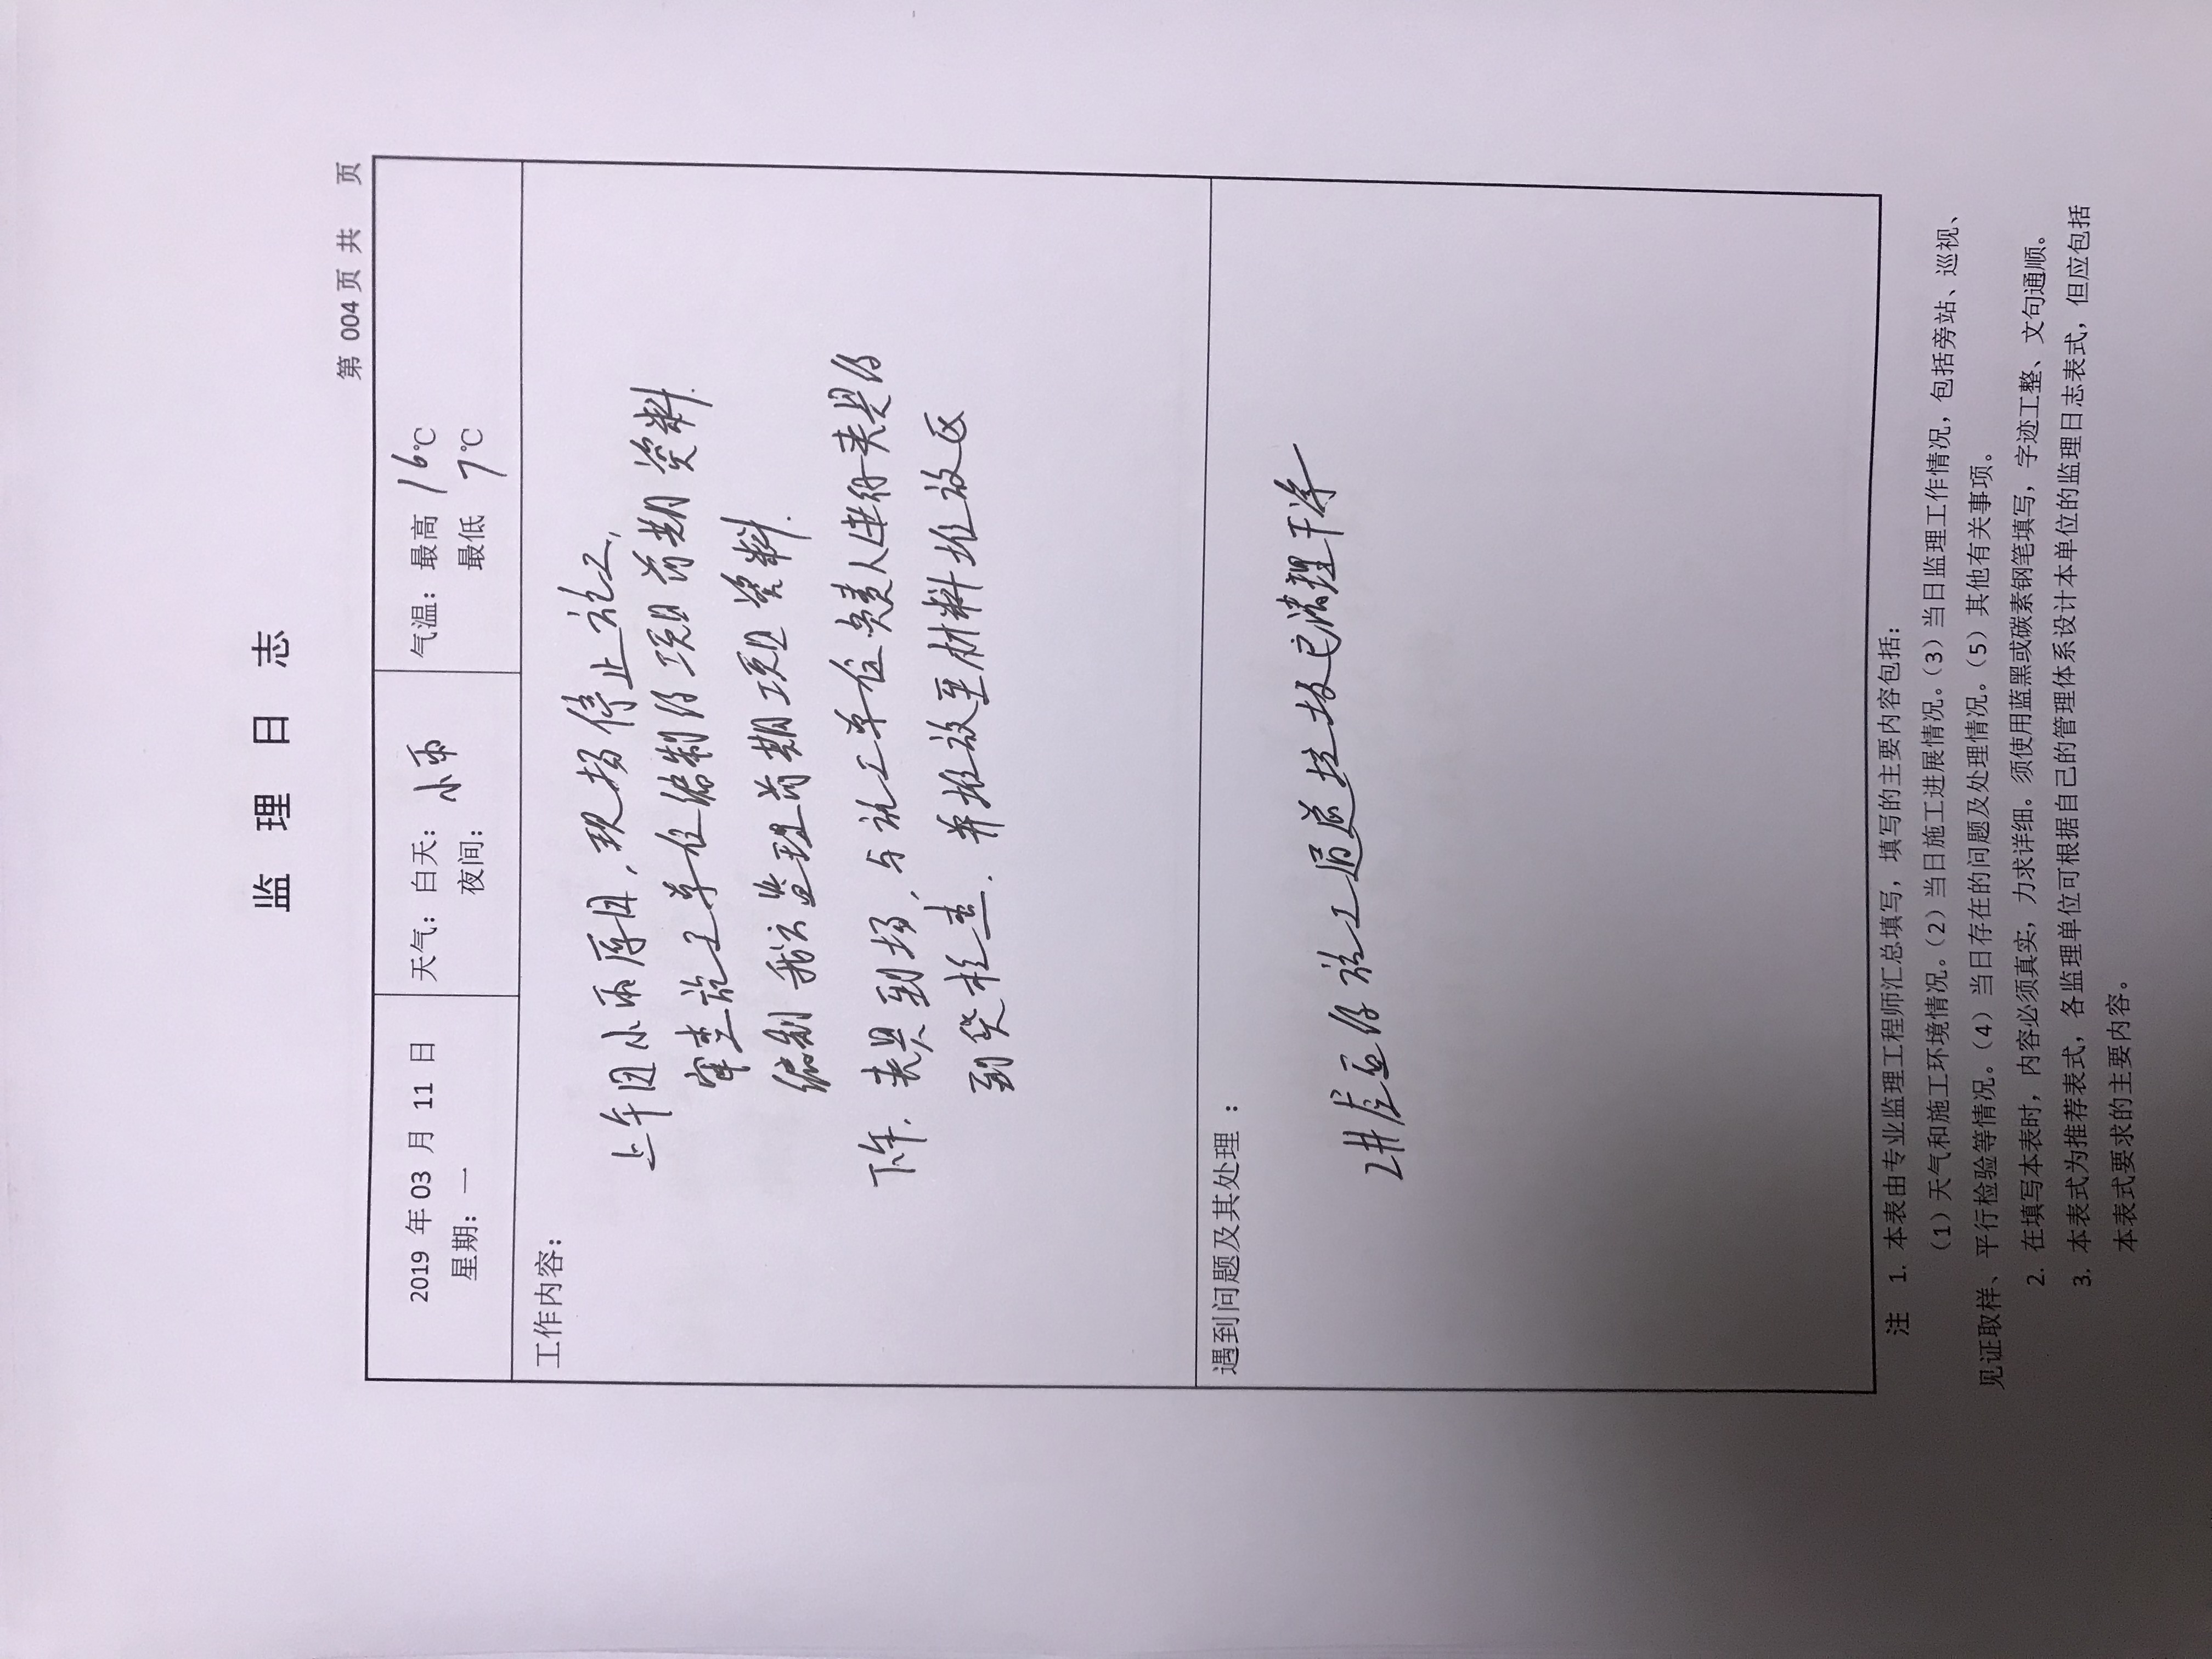 监 理 日 志
第 004 页 共 页
2019 年 03 月 11 日
星期：一
天气：白天：小雨
夜间：
气温：最高 16℃
最低 7℃
工作内容：
上午因小雨原因，现场停止施工，
审查施工单位编制的项目前期资料.
编制我公监理前期项目资料.
下午.夹具到场，与施工单位负责人进行夹具的
到货检查.并堆放至材料堆放区
遇到问题及其处理：
施工通道垃圾已清理干净
注 1. 本表由专业监理工程师汇总填写，填写的主要内容包括：
（1）天气和施工环境情况。（2）当日施工进展情况。（3）当日监理工作情况，包括旁站、巡视、
见证取样、平行检验等情况。（4）当日存在的问题及处理情况。（5）其他有关事项。
2. 在填写本表时，内容必须真实，力求详细。须使用蓝黑或碳素钢笔填写，字迹工整、文句通顺。
3. 本表式为推荐表式，各监理单位可根据自己的管理体系设计本单位的监理日志表式，但应包括
本表式要求的主要内容。